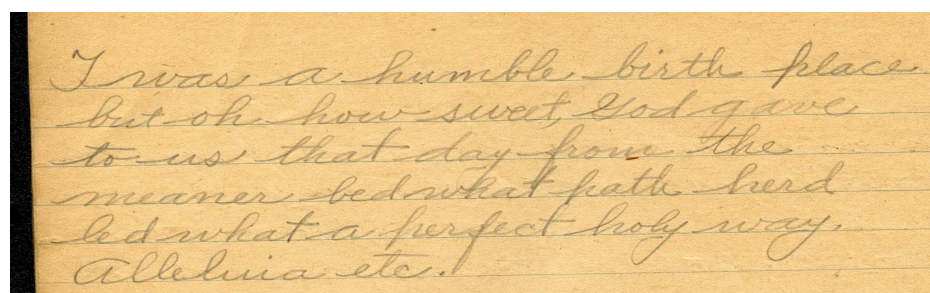 I was a humble birth place
but oh how sweet, God gave
to us that day from the
meaner bed what path herd
led what a perfect holy way.
Alleluia etc.